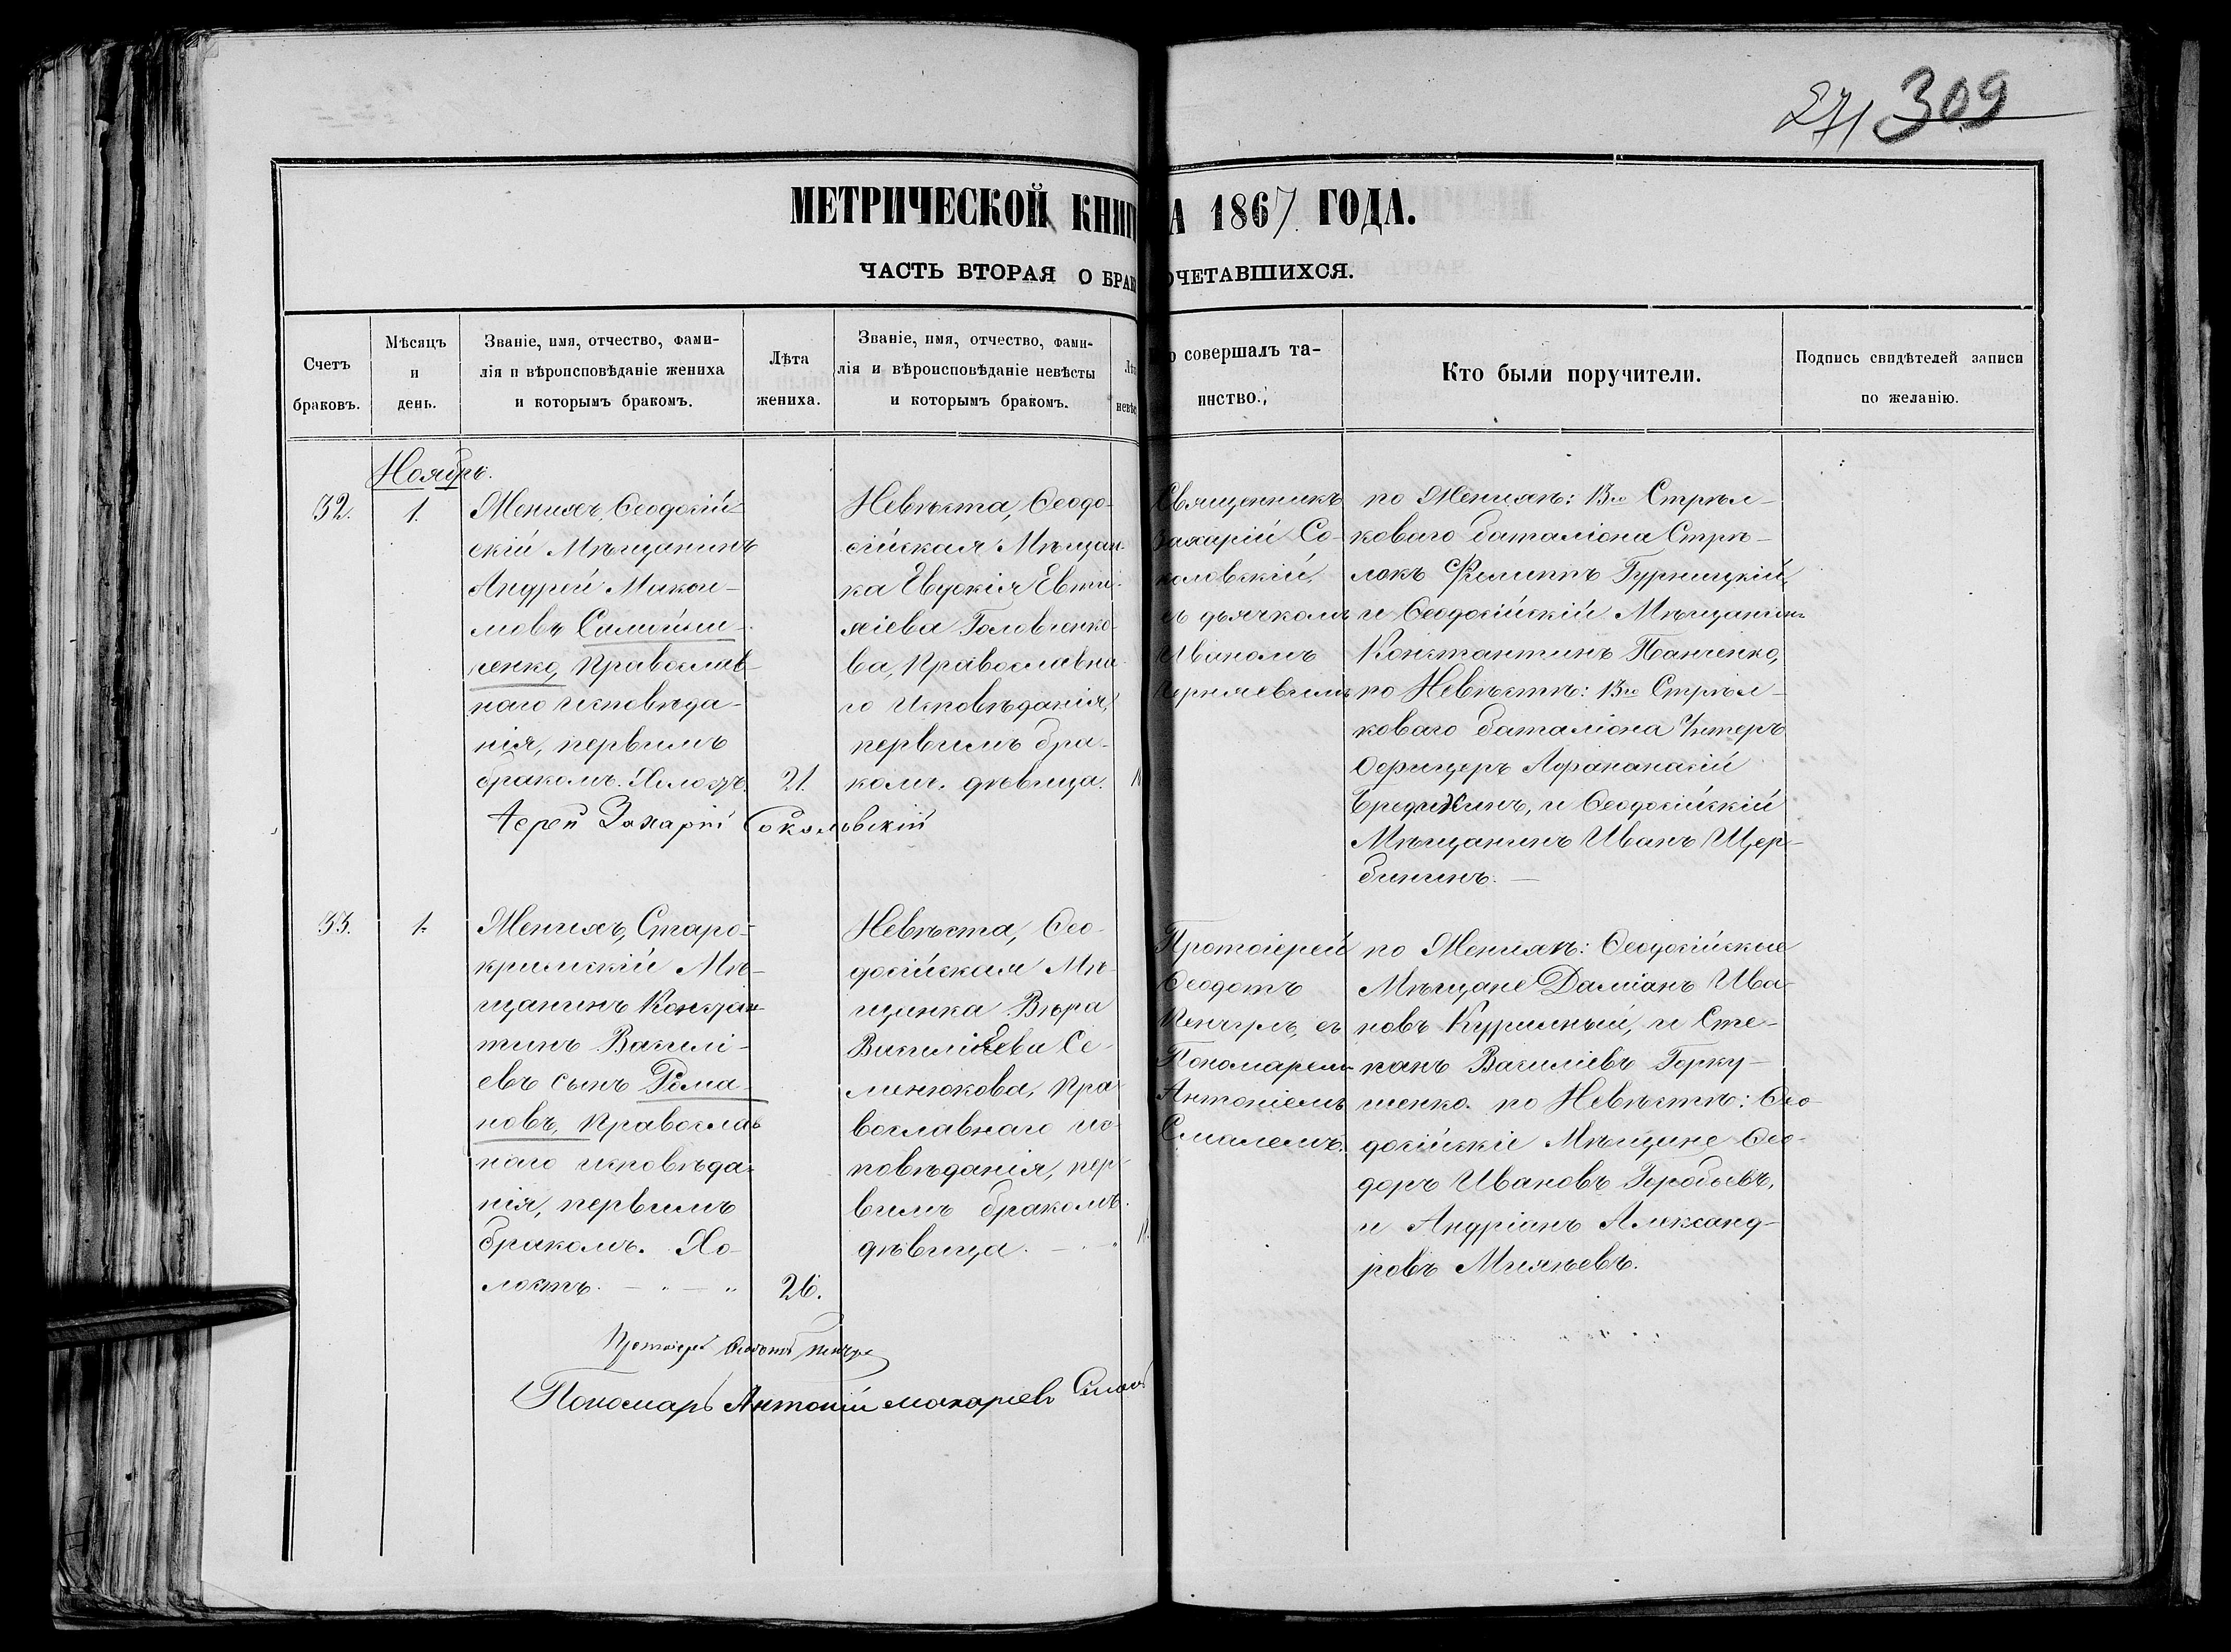 271 309
МЕТРИЧЕСКОЙ КНИГ
А 1867 ГОДА.
ЧАСТЬ ВТОРАЯ О БРАК
ОЧЕТАВШИХСЯ.
Счетъ
браковъ.
Мѣсяцъ
и
день.
Званіе, имя, отчество, фами-
лія и вѣроисповѣданіе жениха
и которымъ бракомъ.
Лѣта
жениха.
Званіе, имя, отчество, фами-
лія и вѣроисповѣданіе невѣсты
и которымъ бракомъ.
Лѣт
невѣс
о совершалъ та-
инство.
Кто были поручители.
Подпись свидѣтелей записи
по желанію.
Ноябрь.
32.
1.
Женихъ, Ѳеодосій-
скій Мѣщанинъ
Андрей Макси-
мовъ Самойли-
ченко, Православ-
наго исповѣда-
нія, первымъ
бракомъ. Холостъ.
21.
Невѣста, Ѳеодо-
сійская Мѣщан-
ка Евдокія Евти-
хіева Головченко-
ва, Православна-
го Исповѣданія,
первымъ бра-
комъ. дѣвица.
Священникъ
Захарій Со-
коловскій,
съ дьячкомъ
Иваномъ
Черняевымъ
по Женихѣ: 13го Стрѣл-
коваго баталіона Стрѣ-
локъ Филиппъ Гурницкій,
и Ѳеодосійскій Мѣщанинъ
Константинъ Панченко,
по Невѣстѣ: 13го Стрѣл-
коваго баталіона Унтеръ
Офицеръ Афанасій
Бредихинъ, и Ѳеодосійскій
Мѣщанинъ Иванъ Щер-
бининъ. —
Іерей Захарій Соколовскій
33.
1.
Женихъ, Старо-
крымскій Мѣ-
щанинъ Констан-
тинъ Василі-
евъ сынъ Рома-
новъ, Православ-
наго исповѣда-
нія, первымъ
бракомъ. Хо-
лостъ.
26.
Невѣста, Ѳео-
досійская Мѣ-
щанка Вѣра
Василіева Се-
менюкова, Пра-
вославнаго ис-
повѣданія, пер-
вымъ бракомъ.
дѣвица.
Протоіерей
Ѳеодотъ
Кенчулъ, съ
Пономаремъ
Антоніемъ
Смалемъ.
по Женихѣ: Ѳеодосійскіе
Мѣщане Даміанъ Ива-
новъ Курилный, и Сте-
панъ Василіевъ Горку-
шенко. по Невѣстѣ: Ѳео-
досійскіе Мѣщане Ѳео-
доръ Ивановъ Горобьевъ,
и Андріанъ Александ-
ровъ Михѣевъ.
Протоіерей Ѳеодотъ
Пономарь Антоній Макаріевъ